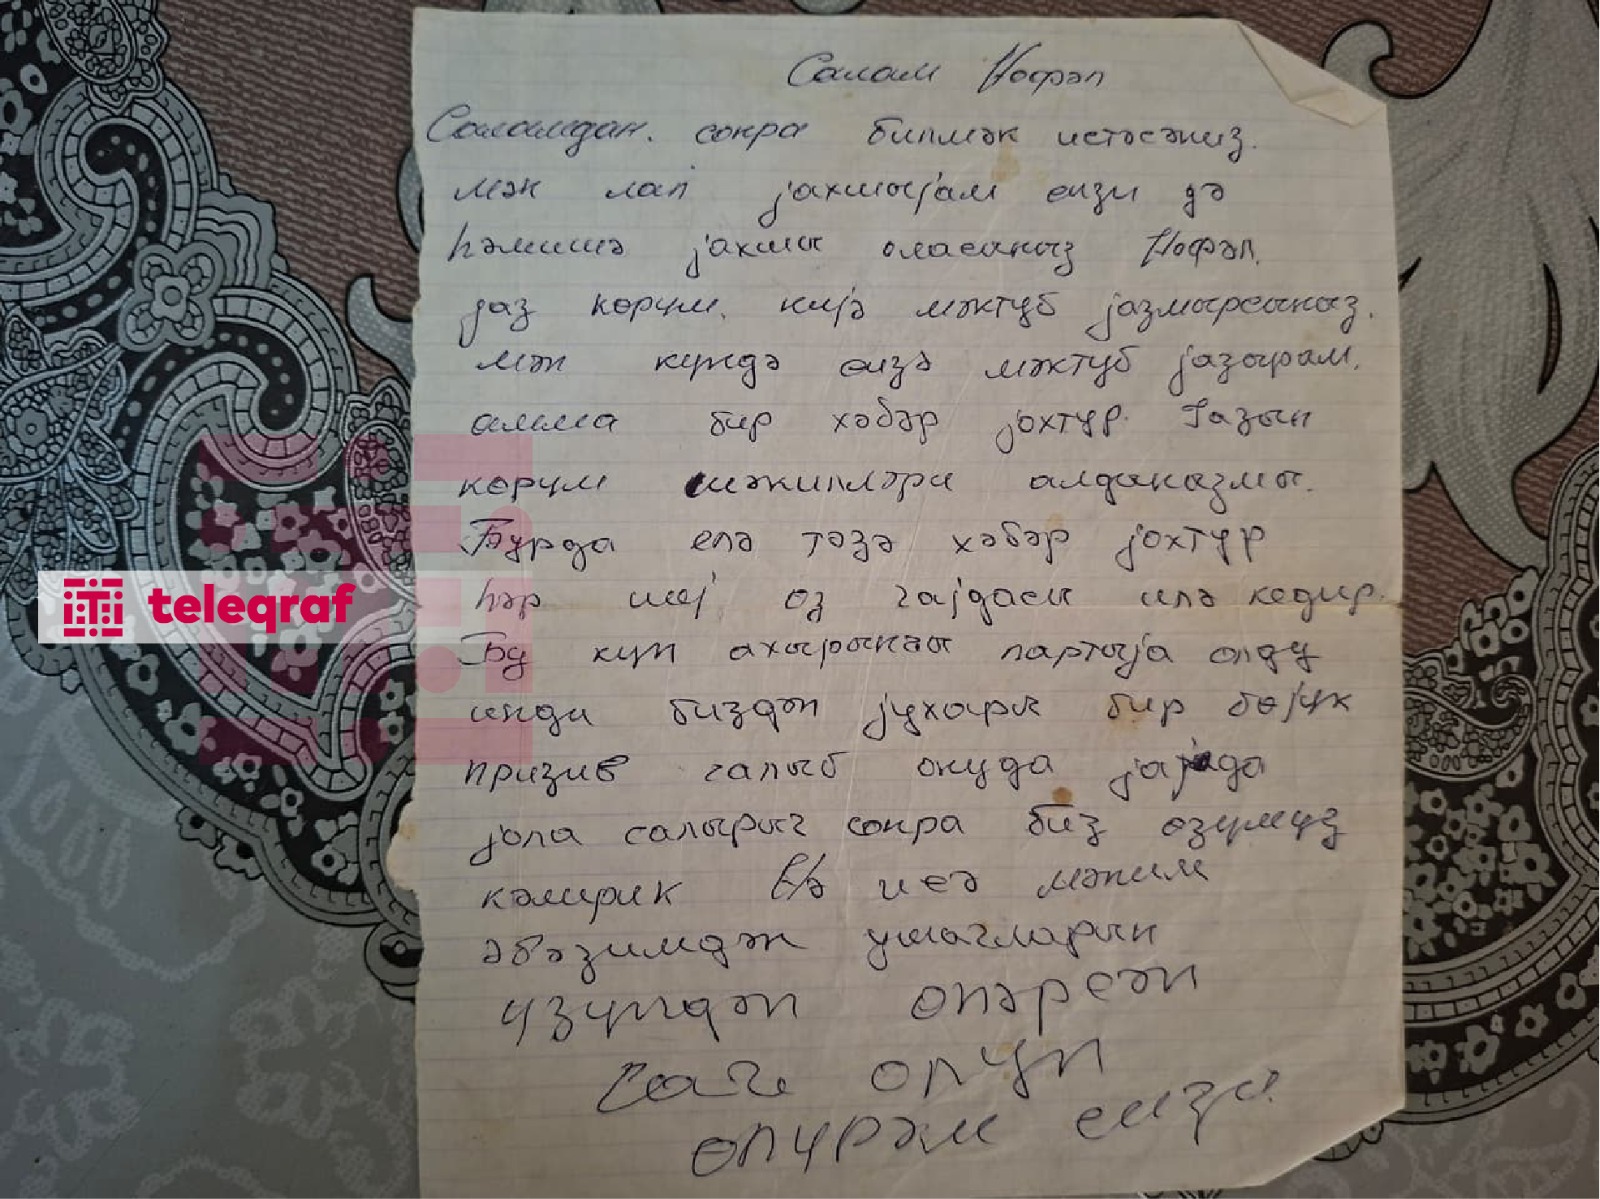 Салам Нофәл
Саламдан. сонра билмәк истәсәниз.
мән лап јахшыјам сизи дә
һәмишә јахшы оласыныз Нофәл.
јаз көрүм. нијә мәктуб јазмырсыныз.
мән күндә сизә мәктуб јазырам.
амма бир хәбәр јохтур. Јазын
көрүм шәкилләри алдыназмы.
Бурда елә тәзә хәбәр јохтур
һәр шеј өз гајдасы илә кедир.
Бу күн ахырынҹы партыја олду
инди биздән јухары бир бөјүк
призив галыб онуда јајда
јола салырыг сонра биз өзүмүз
кәлирик Вә исә мәним
әвәзимдән ушагларын
үзүндән өпәрсән
Сағ олун
өпүрәм сизи.
teleqraf